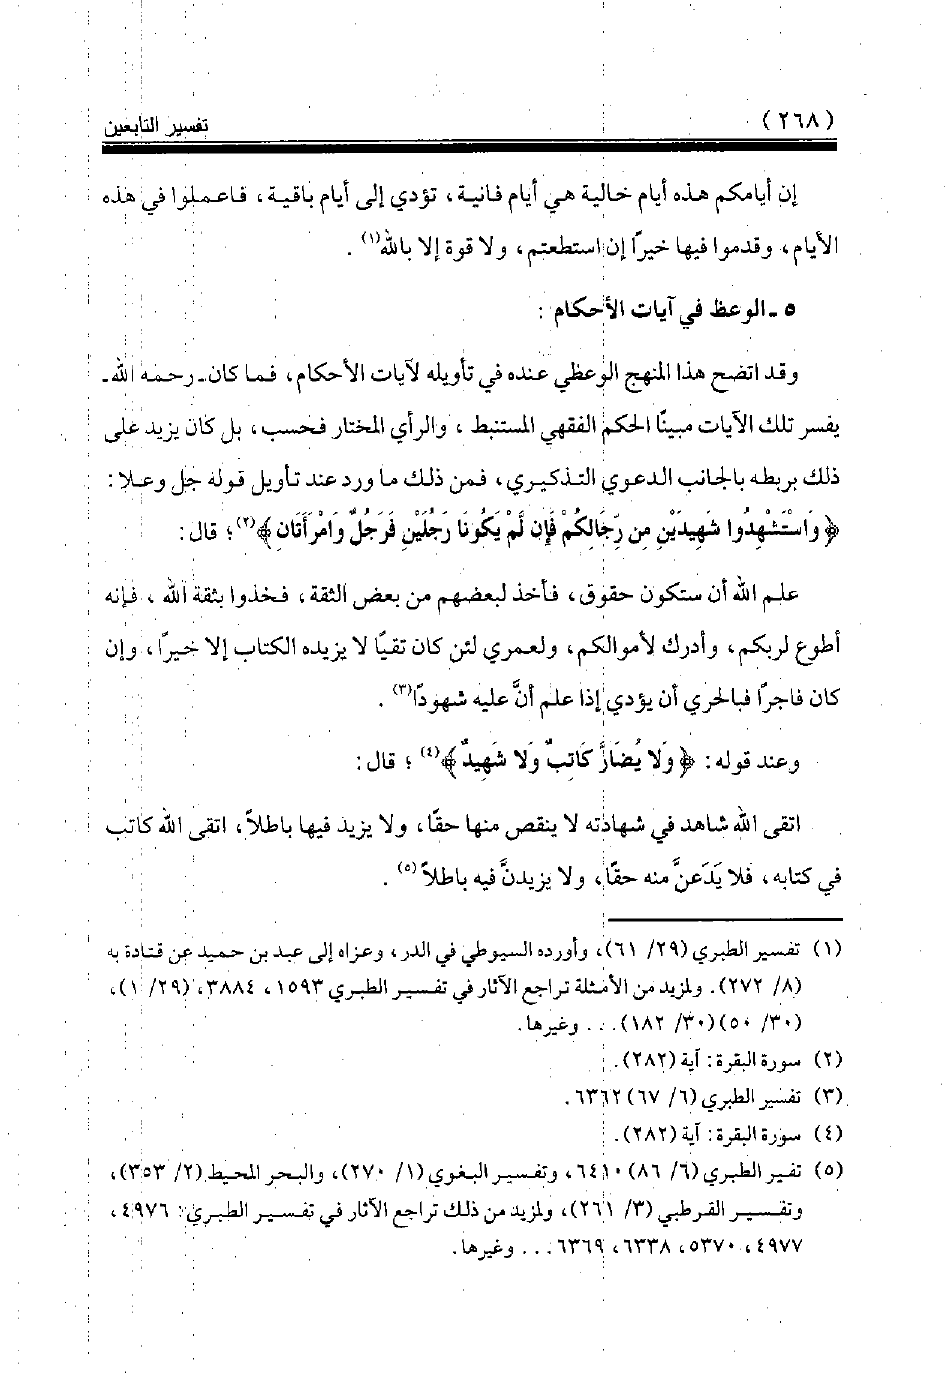 (٢٦٨) تفسير التابعين
إن أيامكم هذه أيام خالية هي أيام فانية، تؤدي إلى أيام باقية، فاعملوا في هذه
الأيام، وقدموا فيها خيرًا إن استطعتم، ولا قوة إلا بالله(١).
٥ ـ الوعظ في آيات الأحكام :
وقد اتضح هذا المنهج الوعظي عنده في تأويله لآيات الأحكام، فما كان ـ رحمه الله ـ
يفسر تلك الآيات مبينًا الحكم الفقهي المستنبط ، والرأي المختار فحسب، بل كان يزيد على
ذلك بربطه بالجانب الدعوي التذكيري، فمن ذلك ما ورد عند تأويل قوله جل وعلا :
﴿ وَاسْتَشْهِدُوا شَهِيدَيْنِ مِن رِّجَالِكُمْ فَإِن لَّمْ يَكُونَا رَجُلَيْنِ فَرَجُلٌ وَامْرَأَتَانِ ﴾(٢)؛ قال :
علم الله أن ستكون حقوق، فأخذ لبعضهم من بعض الثقة، فخذوا بثقة الله ، فإنه
أطوع لربكم، وأدرك لأموالكم، ولعمري لئن كان تقيًا لا يزيده الكتاب إلا خيرًا، وإن
كان فاجرًا فبالحري أن يؤدي إذا علم أنَّ عليه شهودًا(٣).
وعند قوله : ﴿ وَلا يُضَارَّ كَاتِبٌ وَلا شَهِيدٌ ﴾(٤) ؛ قال :
اتقى الله شاهد في شهادته لا ينقص منها حقًا، ولا يزيد فيها باطلاً، اتقى الله كاتب
في كتابه، فلا يَدَعنَّ منه حقًا، ولا يزيدنَّ فيه باطلاً(٥).
(١) تفسير الطبري (٢٩/ ٦١)، وأورده السيوطي في الدر، وعزاه إلى عبد بن حميد عن قتادة به
(٨/ ٢٧٢). ولمزيد من الأمثلة تراجع الآثار في تفسير الطبري ١٥٩٣، ٣٨٨٤، (٢٩/ ١)،
(٣٠/ ٥٠) (٣٠/ ١٨٢). . . وغيرها.
(٢) سورة البقرة : آية (٢٨٢).
(٣) تفسير الطبري (٦/ ٦٧) ٦٣٦٢.
(٤) سورة البقرة : آية (٢٨٢).
(٥) تفير الطبري (٦/ ٨٦) ٦٤١٠، وتفسير البغوي (١/ ٢٧٠)، والبحر المحيط (٢/ ٣٥٣)،
وتفسير القرطبي (٣/ ٢٦١)، ولمزيد من ذلك تراجع الآثار في تفسير الطبري: ٤٩٧٦،
٤٩٧٧، ٥٣٧٠، ٦٣٣٨، ٦٣٦٩. . . وغيرها.